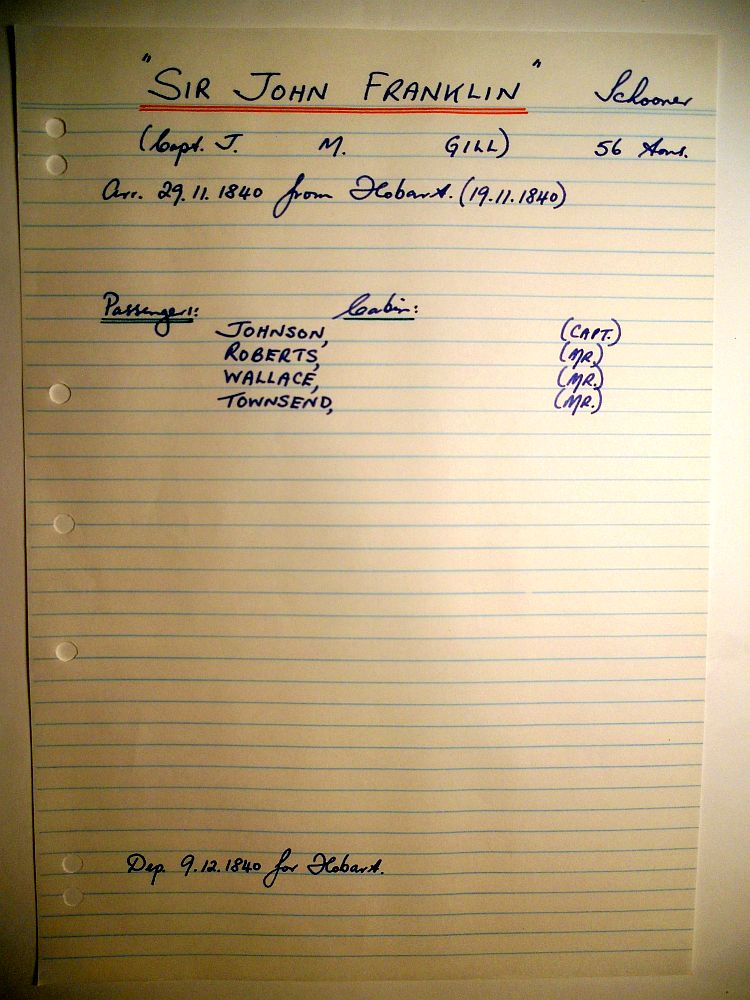 "SIR JOHN FRANKLIN" Schooner
(Capt. J. M. GILL) 56 tons.
Arr. 29.11.1840 from Hobart. (19.11.1840)
Passengers: Cabin:
JOHNSON, (CAPT.)
ROBERTS, (MR.)
WALLACE, (MR.)
TOWNSEND, (MR.)
Dep. 9.12.1840 for Hobart.